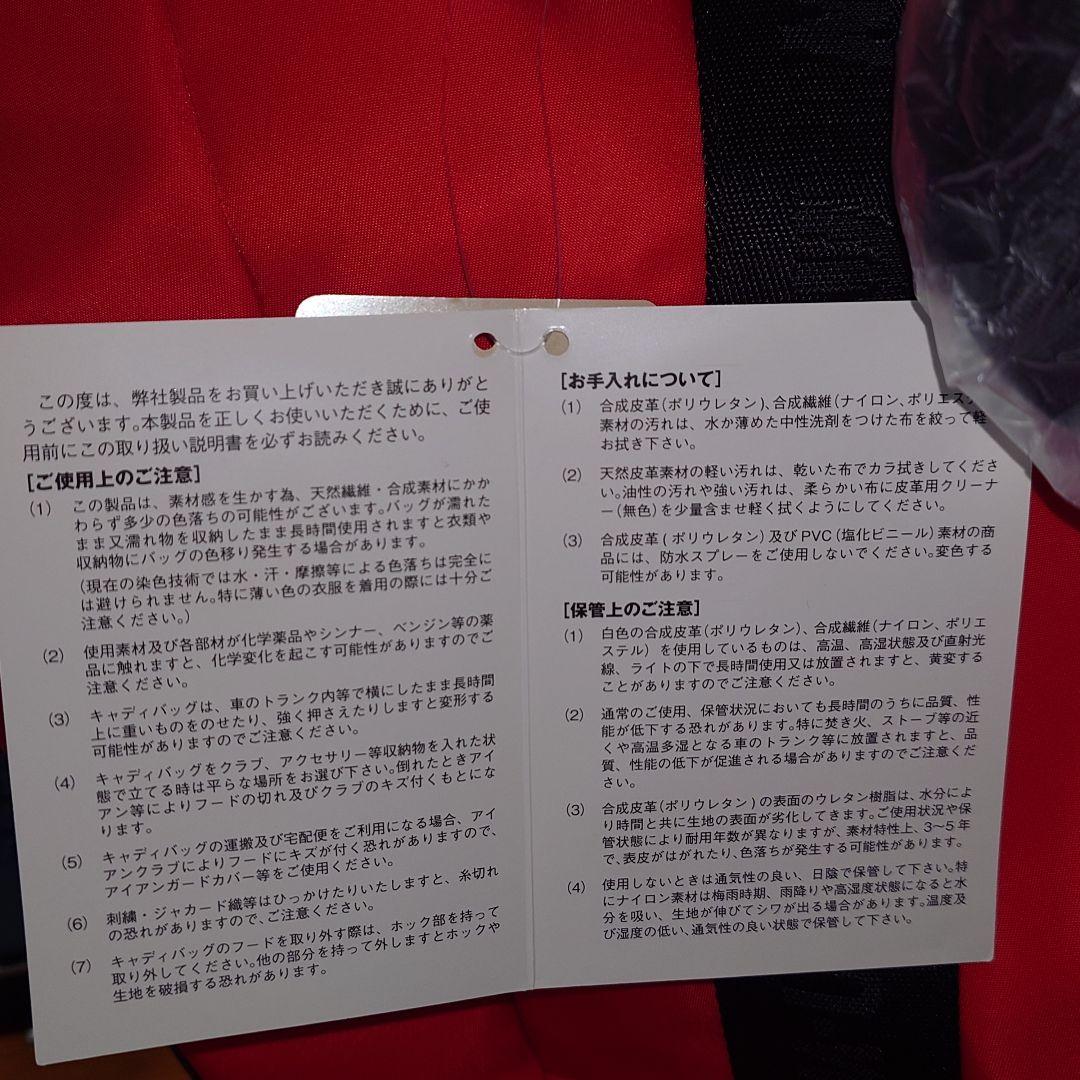 この度は、弊社製品をお買い上げいただき誠にありがと
うございます。本製品を正しくお使いいただくために、ご使
用前にこの取り扱い説明書を必ずお読みください。
[ご使用上のご注意]
(1) この製品は、素材感を生かす為、天然繊維・合成素材にかか
わらず多少の色落ちの可能性がございます。バッグが濡れた
まま又濡れ物を収納したまま長時間使用されますと衣類や
収納物にバッグの色移り発生する場合があります。
(現在の染色技術では水・汗・摩擦等による色落ちは完全に
は避けられません。特に薄い色の衣服を着用の際には十分ご
注意ください。)
(2) 使用素材及び各部材が化学薬品やシンナー、ベンジン等の薬
品に触れますと、化学変化を起こす可能性がありますのでご
注意ください。
(3) キャディバッグは、車のトランク内等で横にしたまま長時間
上に重いものをのせたり、強く押さえたりしますと変形する
可能性がありますのでご注意ください。
(4) キャディバッグをクラブ、アクセサリー等収納物を入れた状
態で立てる時は平らな場所をお選び下さい。倒れたときアイ
アン等によりフードの切れ及びクラブのキズ付くもとにな
ります。
(5) キャディバッグの運搬及び宅配便をご利用になる場合、アイ
アンクラブによりフードにキズが付く恐れがありますので、
アイアンガードカバー等をご使用ください。
(6) 刺繍・ジャカード織等はひっかけたりいたしますと、糸切れ
の恐れがありますので、ご注意ください。
(7) キャディバッグのフードを取り外す際は、ホック部を持って
取り外してください。他の部分を持って外しますとホックや
生地を破損する恐れがあります。
[お手入れについて]
(1) 合成皮革(ポリウレタン)、合成繊維(ナイロン、ポリエス
素材の汚れは、水か薄めた中性洗剤をつけた布を絞って軽
お拭き下さい。
(2) 天然皮革素材の軽い汚れは、乾いた布でカラ拭きしてくださ
い。油性の汚れや強い汚れは、柔らかい布に皮革用クリーナ
ー(無色)を少量含ませ軽く拭くようにしてください。
(3) 合成皮革(ポリウレタン)及びPVC(塩化ビニール)素材の商
品には、防水スプレーをご使用しないでください。変色する
可能性があります。
[保管上のご注意]
(1) 白色の合成皮革(ポリウレタン)、合成繊維(ナイロン、ポリエ
ステル)を使用しているものは、高温、高湿状態及び直射光
線、ライトの下で長時間使用又は放置されますと、黄変する
ことがありますのでご注意ください。
(2) 通常のご使用、保管状況においても長時間のうちに品質、性
能が低下する恐れがあります。特に焚き火、ストーブ等の近
くや高温多湿となる車のトランク等に放置されますと、品
質、性能の低下が促進される場合がありますのでご注意くだ
さい。
(3) 合成皮革(ポリウレタン)の表面のウレタン樹脂は、水分によ
り時間と共に生地の表面が劣化してきます。ご使用状況や保
管状態により耐用年数が異なりますが、素材特性上、3〜5年
で、表皮がはがれたり、色落ちが発生する可能性があります。
(4) 使用しないときは通気性の良い、日陰で保管して下さい。特
にナイロン素材は梅雨時期、雨降りや高湿度状態になると水
分を吸い、生地が伸びてシワが出る場合があります。温度及
び湿度の低い、通気性の良い状態で保管して下さい。